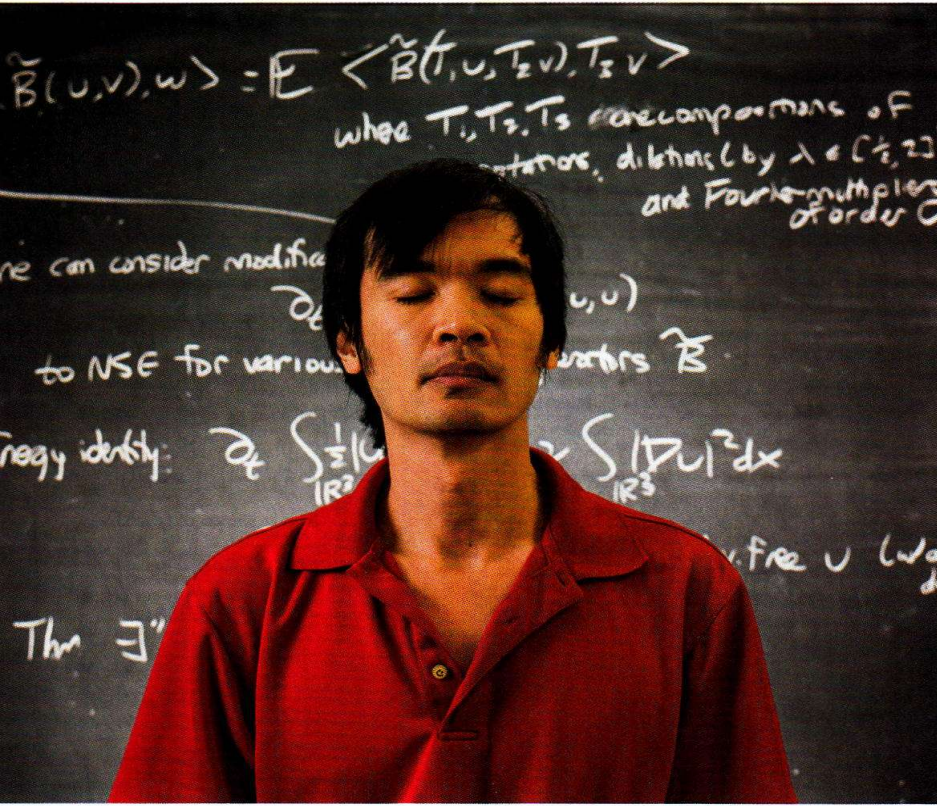 B̃(u,v),w> = E <B̃(T₁u,T₂v),T₃v>
where T₁,T₂,T₃ are compositions of
rotations, dilations (by λ ∈ [½,2]
and Fourier multipliers
of order 0
ne can consider modifica
∂t u,u)
to NSE for various erators B̃
nergy identity: ∂t ∫ℝ³ ½|u ∫ℝ³ |∇u|²dx
free u
Thm ∃"